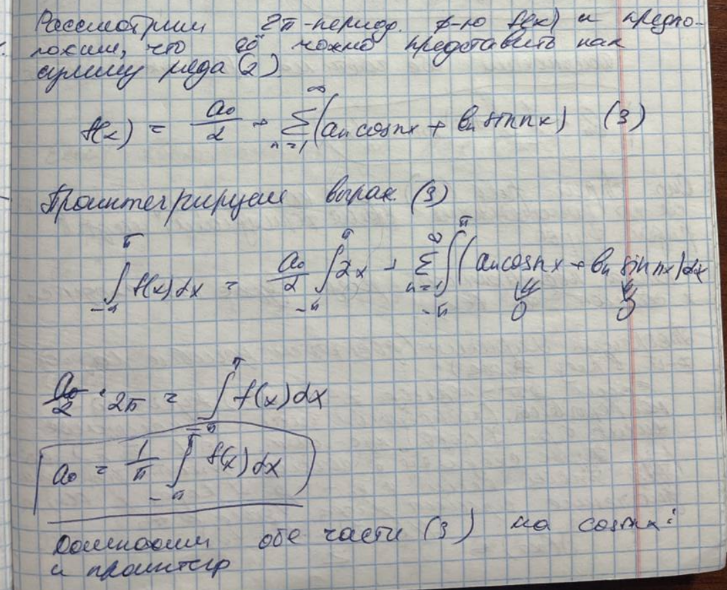 Рассмотрим 2π-период. ф-ю f(x) и предпо-
ложим, что её можно представить как
сумму ряда (2)
f(x) = a₀/2 + ∑_{n=1}^{∞} (an cosnx + bn sinnx) (3)
Проинтегрируем выраж. (3)
∫_{-π}^{π} f(x)dx = a₀/2 ∫_{-π}^{π} dx + ∑_{n=1}^{∞} ∫_{-π}^{π} (an cosnx + bn sinnx)dx
0 0
a₀/2 · 2π = ∫_{-π}^{π} f(x)dx
a₀ = 1/π ∫_{-π}^{π} f(x)dx
Домножим обе части (3) на cosmx:
и проинтегр